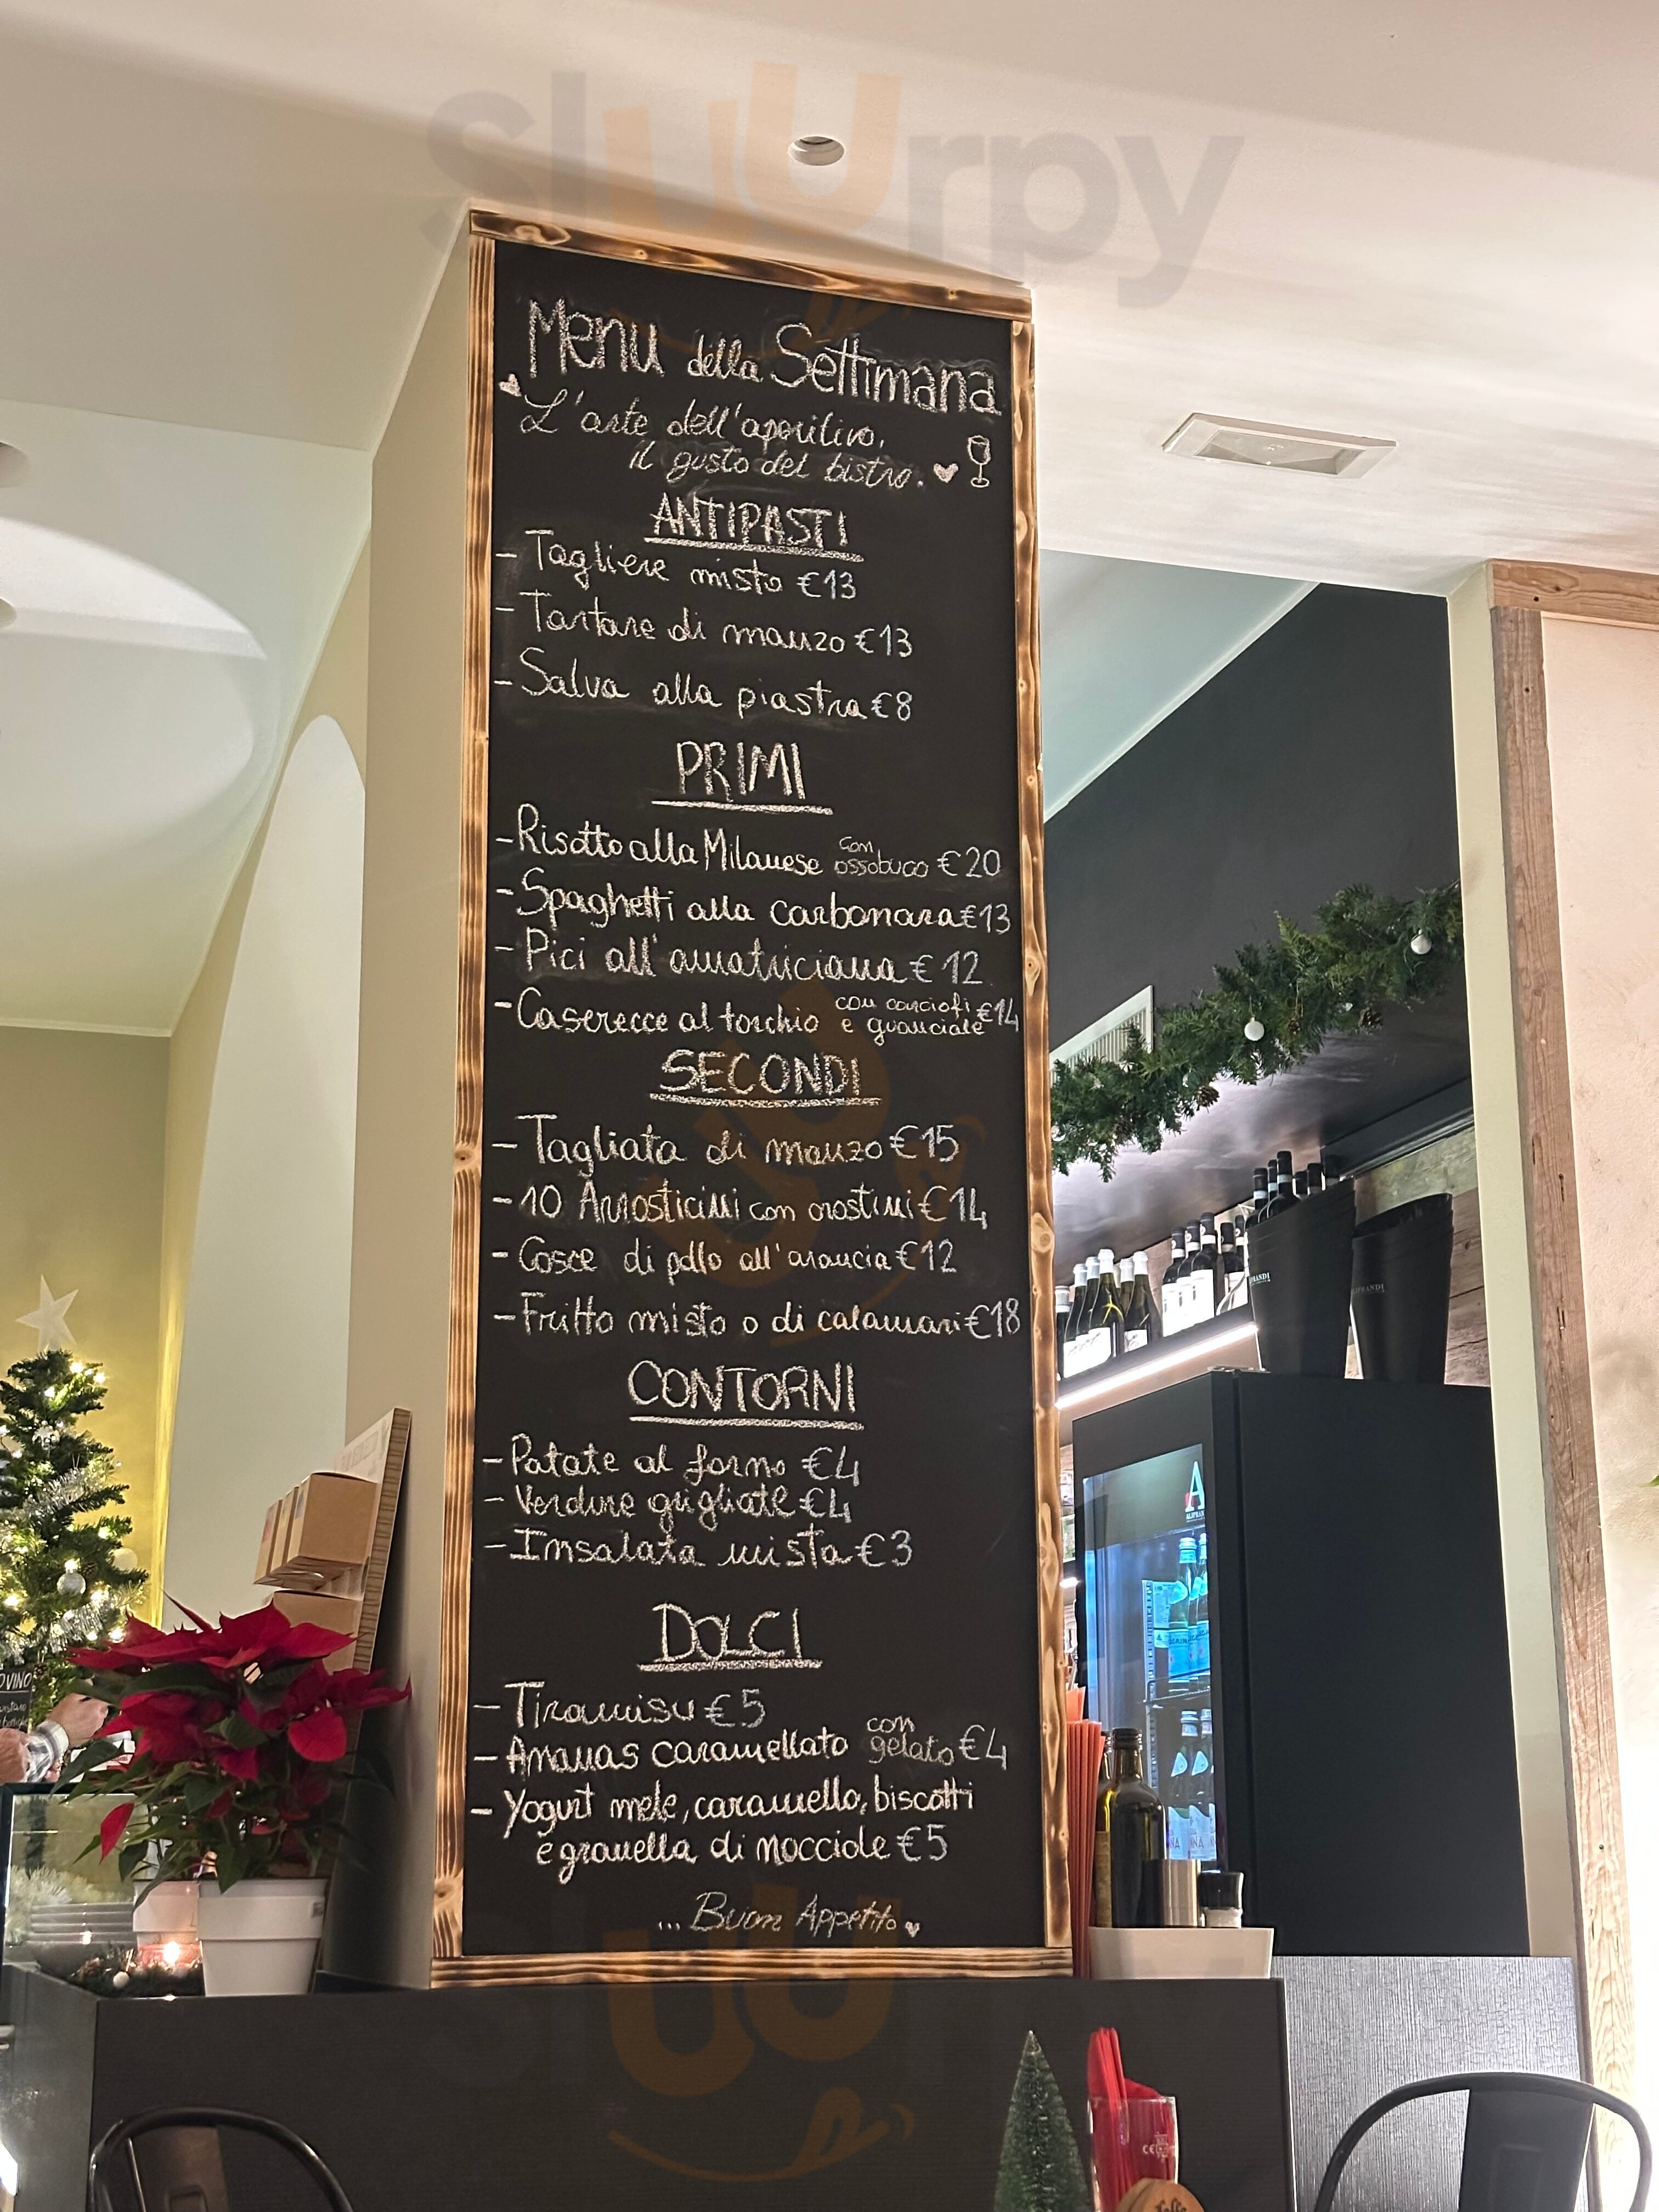 sluurpy
Menu della Settimana
L'arte dell'aperitivo,
il gusto del bistro.
ANTIPASTI
- Tagliere misto €13
- Tartare di manzo €13
- Salva alla piastra €8
PRIMI
- Risotto alla Milanese con ossobuco €20
- Spaghetti alla carbonara €13
- Pici all'amatriciana €12
- Caserecce al torchio con carciofi e guanciale €14
SECONDI
- Tagliata di manzo €15
- 10 Arrosticini con crostini €14
- Cosce di pollo all'arancia €12
- Fritto misto o di calamari €18
CONTORNI
- Patate al forno €4
- Verdure grigliate €4
- Insalata mista €3
DOLCI
- Tiramisu €5
- Ananas caramellato con gelato €4
- Yogurt mele, caramello, biscotti
e granella di nocciole €5
... Buon Appetito